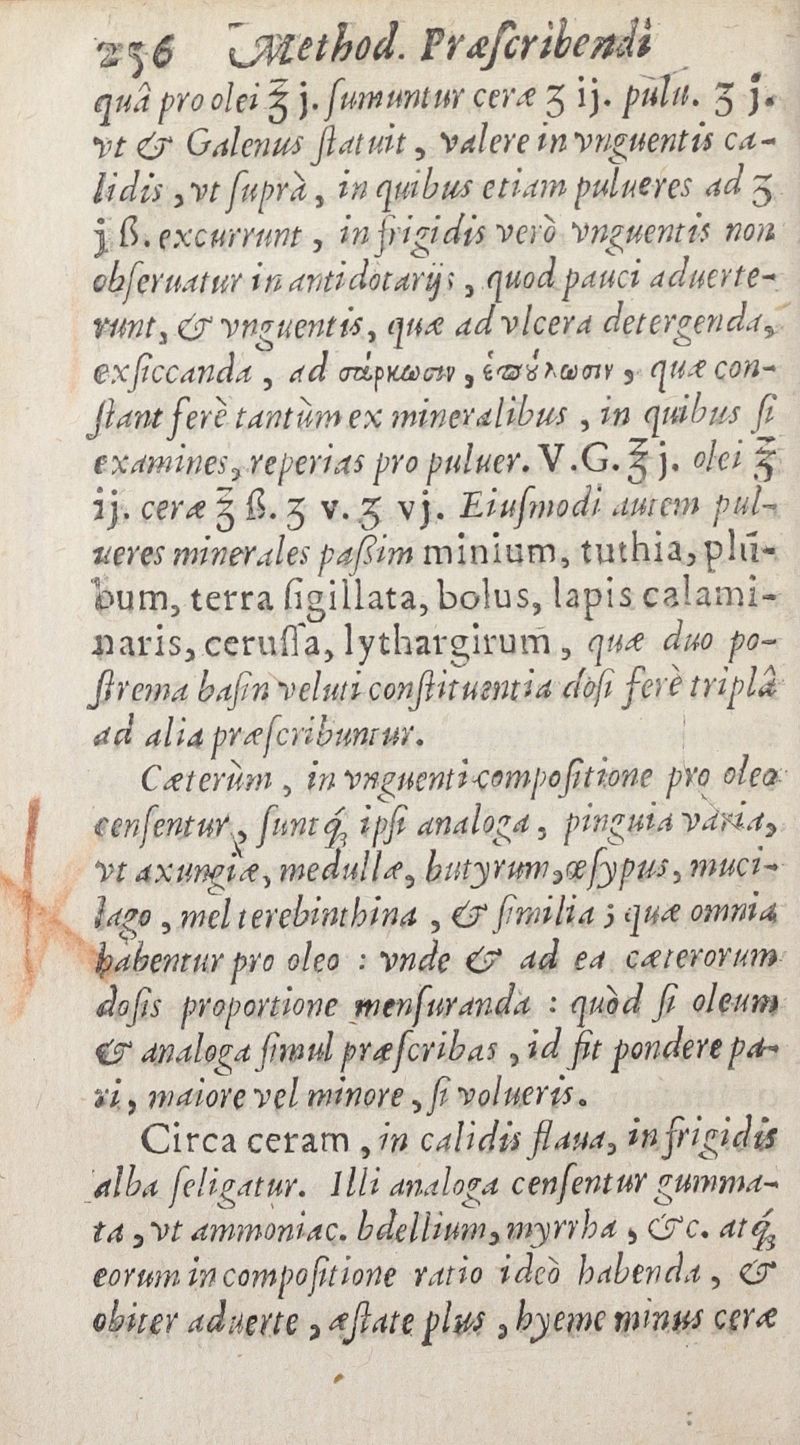 256 Method. Præſcribendi
quâ pro olei ℥ j. ſumuntur ceræ ʒ ij. pulu. ʒ j.
vt & Galenus ſtatuit, valere in vnguentis ca-
lidis, vt ſuprà, in quibus etiam pulueres ad ʒ
j ß. excurrunt, in frigidis verò vnguentis non
obſeruatur in antidotarijs, quod pauci aduerte-
runt, & vnguentis, quæ ad vlcera detergenda,
exſiccanda, ad σάρκωσιν, ἐπούλωσιν, quæ con-
ſtant ferè tantùm ex mineralibus, in quibus ſi
examines, reperias pro puluer. V.G. ℥ j. olei ℥
ij. ceræ ℥ ß. ʒ v. ʒ vj. Eiuſmodi autem pul-
ueres minerales paßim minium, tuthia, plū-
bum, terra ſigillata, bolus, lapis calami-
naris, ceruſſa, lythargirum, quæ duo po-
ſtrema baſin veluti conſtituentia doſi ferè triplâ
ad alia præſcribuntur.
Cæterùm, in vnguenti compoſitione pro oleo
cenſentur, ſuntq́; ipſi analoga, pinguia varia,
vt axungiæ, medullæ, butyrum, œſypus, muci-
lago, mel terebinthina, & ſimilia; quæ omnia
habentur pro oleo : vnde & ad ea cæterorum
doſis proportione menſuranda : quòd ſi oleum
& analoga ſimul præſcribas, id fit pondere pa-
ri, maiore vel minore, ſi volueris.
Circa ceram, in calidis flaua, in frigidis
alba ſeligatur. Illi analoga cenſentur gumma-
ta, vt ammoniac. bdellium, myrrha, &c. atq́;
eorum in compoſitione ratio ideò habenda, &
obiter aduerte, æſtate plus, hyeme minus ceræ